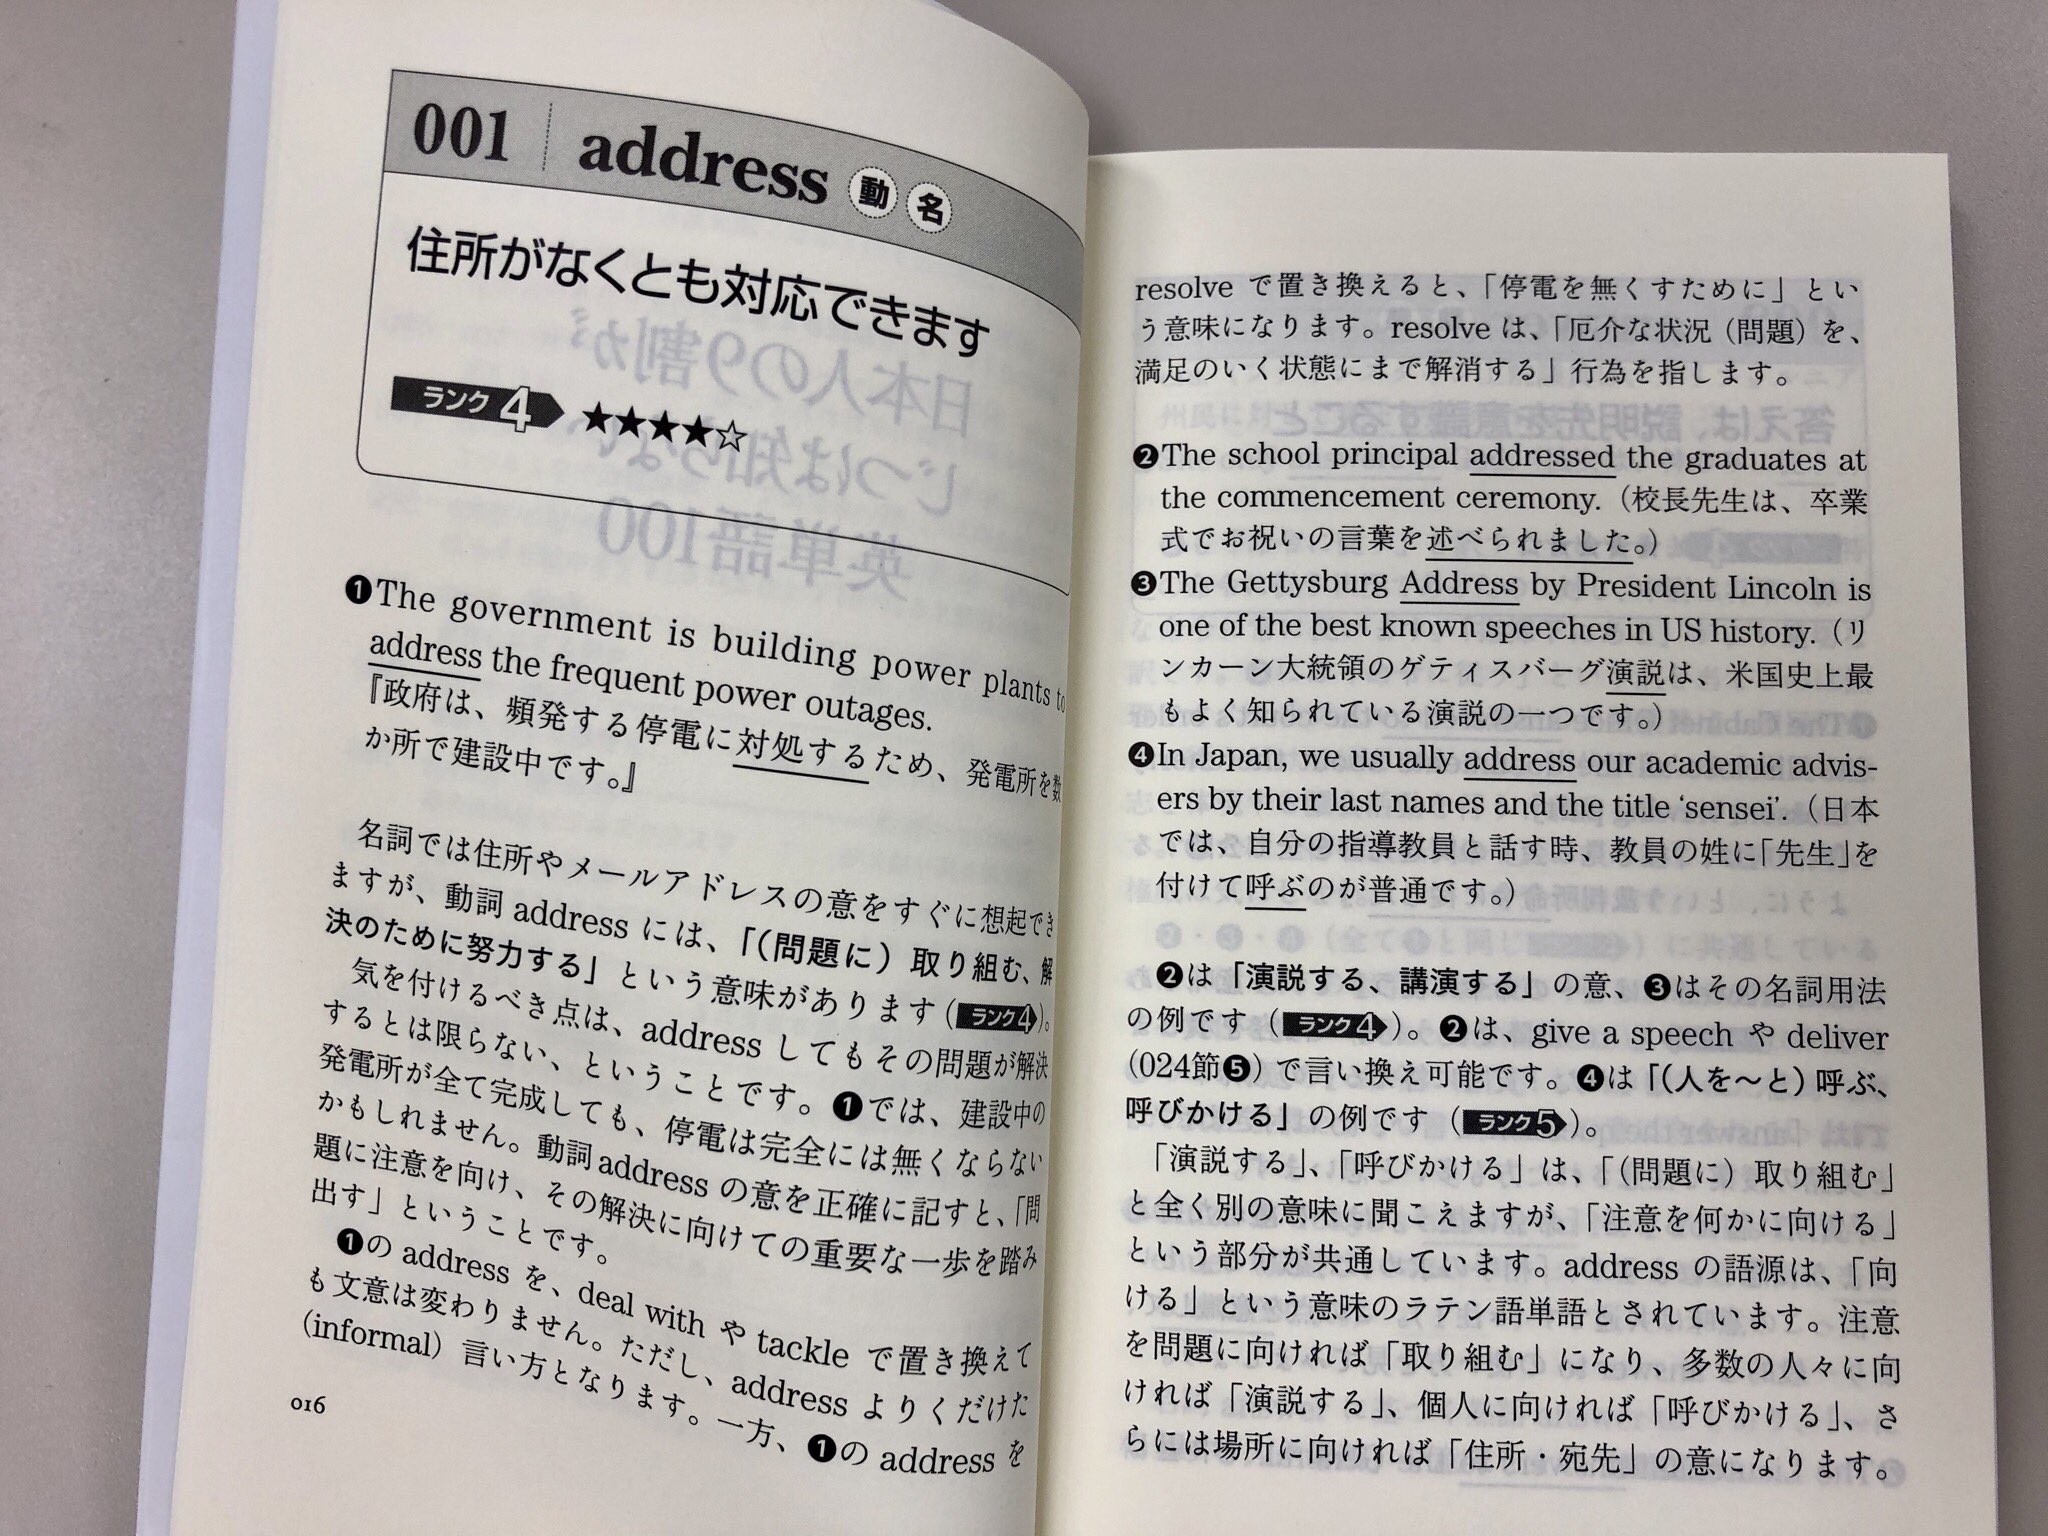 001 address 動 名
住所がなくとも対応できます
ランク4 ★★★★☆
❶The government is building power plants to
address the frequent power outages.
『政府は、頻発する停電に対処するため、発電所を数
か所で建設中です。』
名詞では住所やメールアドレスの意をすぐに想起でき
ますが、動詞 address には、「（問題に）取り組む、解
決のために努力する」という意味があります（ランク4）。
気を付けるべき点は、address してもその問題が解決
するとは限らない、ということです。❶では、建設中の
発電所が全て完成しても、停電は完全には無くならない
かもしれません。動詞 address の意を正確に記すと、「問
題に注意を向け、その解決に向けての重要な一歩を踏み
出す」ということです。
❶の address を、deal with や tackle で置き換えて
も文意は変わりません。ただし、address よりくだけた
(informal) 言い方となります。一方、❶の address を
016
resolve で置き換えると、「停電を無くすために」とい
う意味になります。resolve は、「厄介な状況（問題）を、
満足のいく状態にまで解消する」行為を指します。
❷The school principal addressed the graduates at
the commencement ceremony.（校長先生は、卒業
式でお祝いの言葉を述べられました。）
❸The Gettysburg Address by President Lincoln is
one of the best known speeches in US history.（リ
ンカーン大統領のゲティスバーグ演説は、米国史上最
もよく知られている演説の一つです。）
❹In Japan, we usually address our academic advis-
ers by their last names and the title ‘sensei’.（日本
では、自分の指導教員と話す時、教員の姓に「先生」を
付けて呼ぶのが普通です。）
❷は「演説する、講演する」の意、❸はその名詞用法
の例です（ランク4）。❷は、give a speech や deliver
(024節❺) で言い換え可能です。❹は「（人を〜と）呼ぶ、
呼びかける」の例です（ランク5）。
「演説する」、「呼びかける」は、「（問題に）取り組む」
と全く別の意味に聞こえますが、「注意を何かに向ける」
という部分が共通しています。address の語源は、「向
ける」という意味のラテン語単語とされています。注意
を問題に向ければ「取り組む」になり、多数の人々に向
ければ「演説する」、個人に向ければ「呼びかける」、さ
らには場所に向ければ「住所・宛先」の意になります。